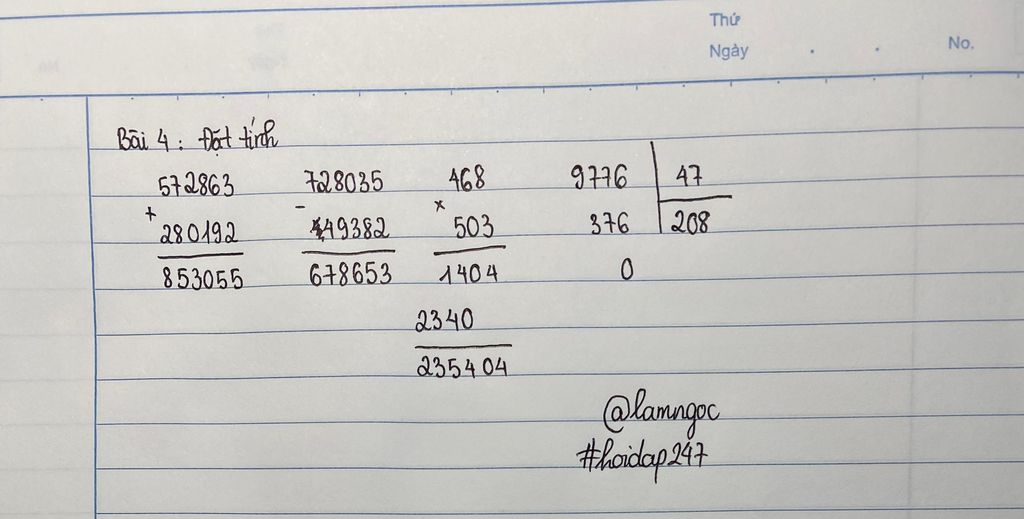 Thứ
Ngày . . No.
Bài 4 : Đặt tính
572863 728035 468 9776 47
+ - ×
280192 49382 503 376 208
853055 678653 1404 0
2340
235404
@lamngoc
#hoidap247